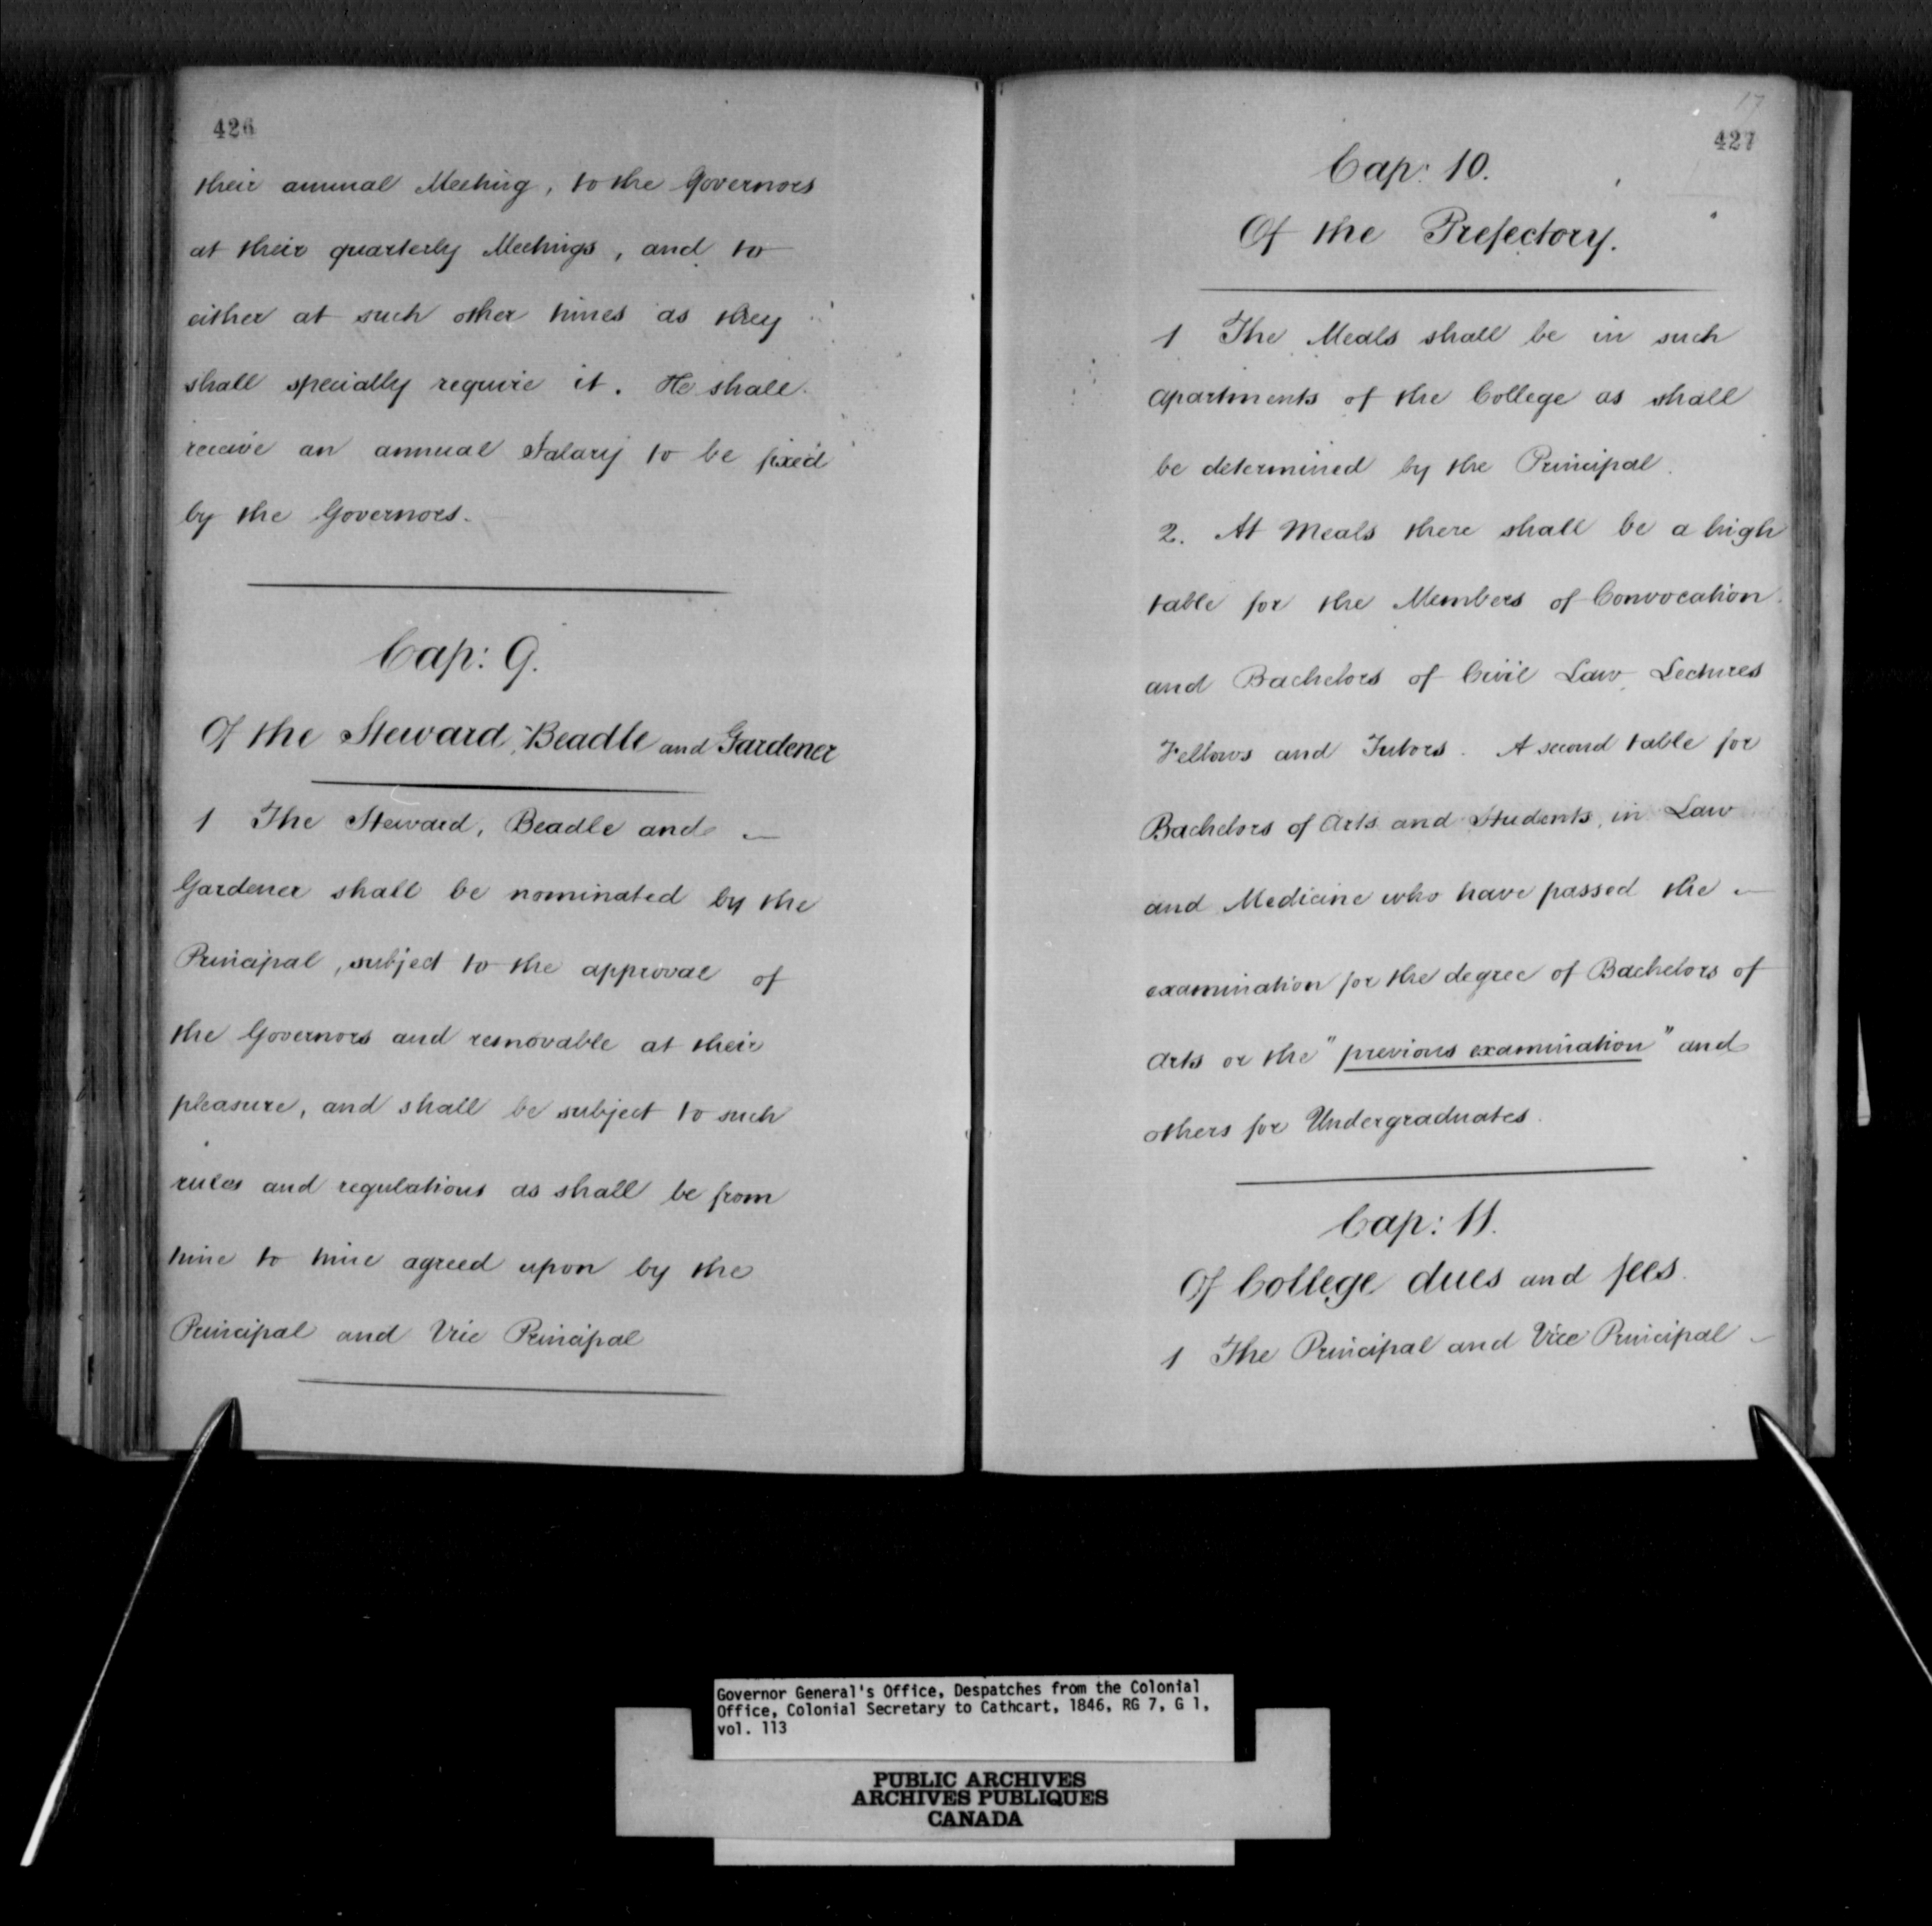 426
their annual Meeting, to the Governors
at their quarterly Meetings, and to
either at such other times as they
shall specially require it. He shall
receive an annual Salary to be fixed
by the Governors.
Cap: 9.
Of the Steward, Beadle and Gardener
1 The Steward, Beadle and
Gardener shall be nominated by the
Principal, subject to the approval of
the Governors and removable at their
pleasure, and shall be subject to such
rules and regulations as shall be from
time to time agreed upon by the
Principal and Vice Principal
17
427
Cap: 10.
Of the Prefectory.
1 The Meals shall be in such
apartments of the College as shall
be determined by the Principal.
2. At Meals there shall be a high
table for the Members of Convocation
and Bachelors of Civil Law Lectures
Fellows and Tutors. A second table for
Bachelors of Arts and Students, in Law
and Medicine who have passed the
examination for the degree of Bachelors of
Arts or the "previous examination" and
others for Undergraduates.
Cap: 11.
Of College dues and fees.
1 The Principal and Vice Principal
Governor General's Office, Despatches from the Colonial
Office, Colonial Secretary to Cathcart, 1846, RG 7, G 1,
vol. 113
PUBLIC ARCHIVES
ARCHIVES PUBLIQUES
CANADA